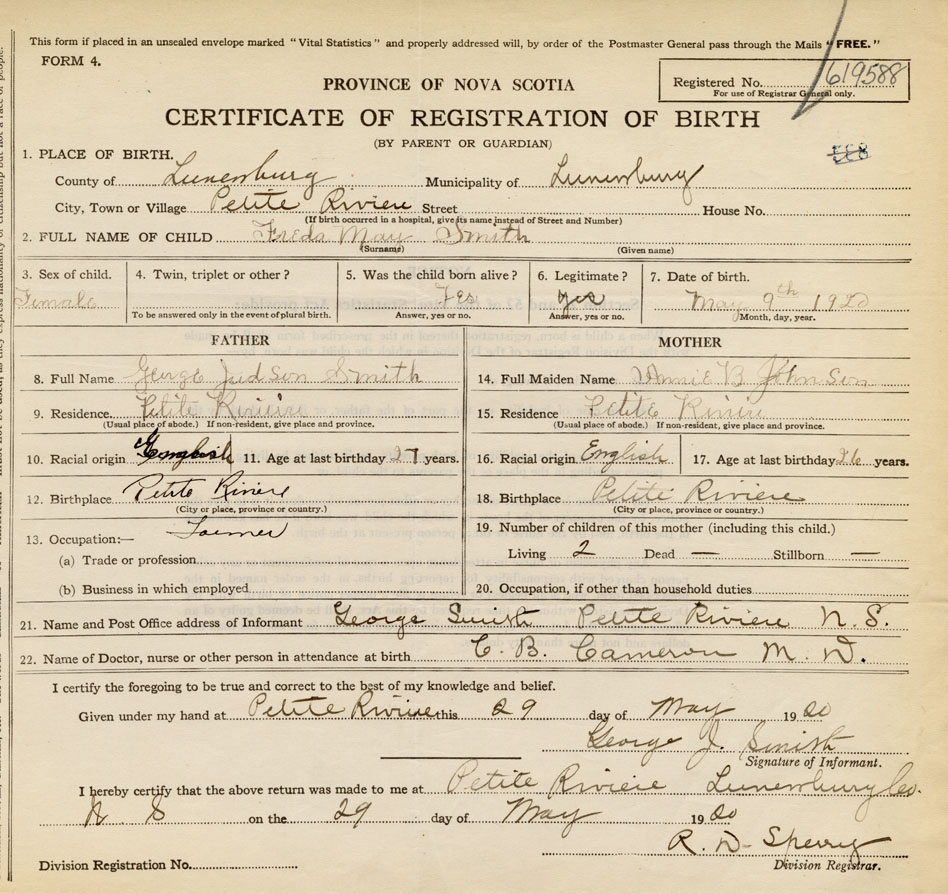 This form if placed in an unsealed envelope marked "Vital Statistics" and properly addressed will, by order of the Postmaster General pass through the Mails "FREE."
FORM 4.
Registered No. 619588
For use of Registrar General only.
PROVINCE OF NOVA SCOTIA
CERTIFICATE OF REGISTRATION OF BIRTH
(BY PARENT OR GUARDIAN)
1. PLACE OF BIRTH.
County of Lunenburg Municipality of Lunenburg
City, Town or Village Petite Riviere Street House No.
(If birth occurred in a hospital, give its name instead of Street and Number)
2. FULL NAME OF CHILD Freda May Smith
(Surname) (Given name)
3. Sex of child. 4. Twin, triplet or other? 5. Was the child born alive? 6. Legitimate? 7. Date of birth.
Female Yes yes May 9th 1920
To be answered only in the event of plural birth. Answer, yes or no. Answer, yes or no. Month, day, year.
FATHER
8. Full Name George Judson Smith
9. Residence. Petite Riviere
(Usual place of abode.) If non-resident, give place and province.
10. Racial origin English 11. Age at last birthday 27 years.
12. Birthplace Petite Riviere
(City or place, province or country.)
13. Occupation:— Farmer
(a) Trade or profession
(b) Business in which employed
MOTHER
14. Full Maiden Name Annie B Johnson
15. Residence Petite Riviere
(Usual place of abode.) If non-resident, give place and province.
16. Racial origin English 17. Age at last birthday 26 years.
18. Birthplace Petite Riviere
(City or place, province or country.)
19. Number of children of this mother (including this child.)
Living 2 Dead — Stillborn —
20. Occupation, if other than household duties
21. Name and Post Office address of Informant George Smith Petite Riviere N. S.
22. Name of Doctor, nurse or other person in attendance at birth C. B. Cameron M. D.
I certify the foregoing to be true and correct to the best of my knowledge and belief.
Given under my hand at Petite Riviere this 29 day of May 1920
George J. Smith
Signature of Informant.
I hereby certify that the above return was made to me at Petite Riviere Lunenburg Co.
N S on the 29 day of May 1920
R. D. Sperry
Division Registration No. Division Registrar.